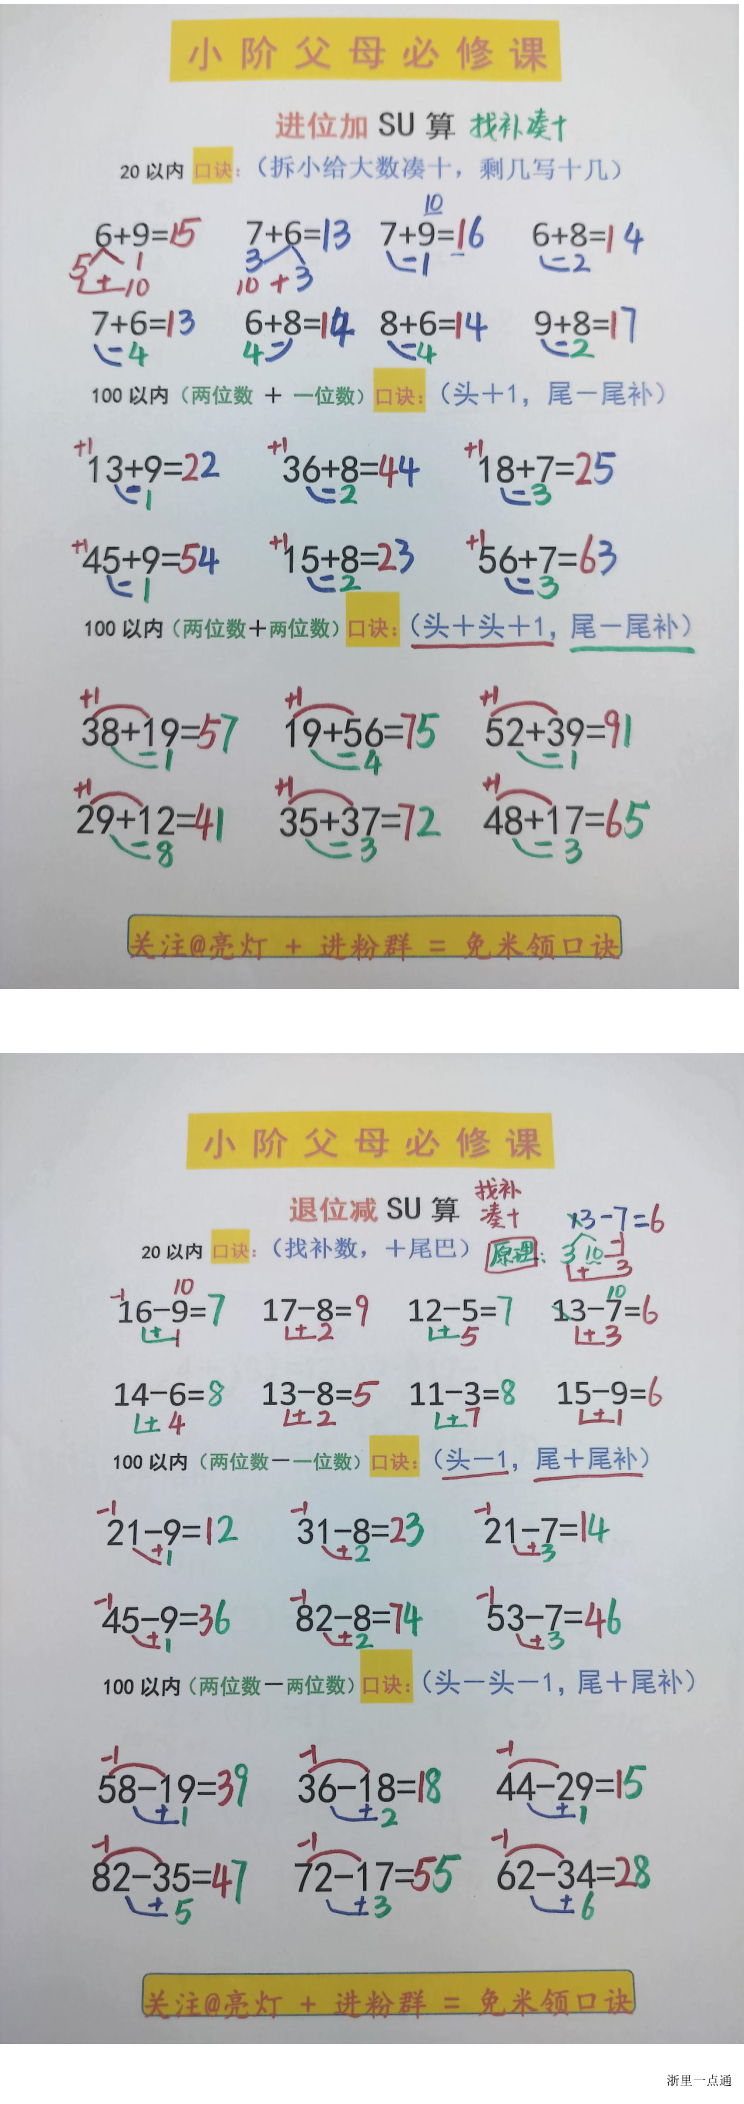 小阶父母必修课
进位加 SU 算 找补凑十
20 以内 口诀：（拆小给大数凑十，剩几写十几）
10
6+9=15 7+6=13 7+9=16 6+8=14
5 1 3 -1 -2
+10 10+3
7+6=13 6+8=14 8+6=14 9+8=17
-4 4- -4 -2
100 以内（两位数 + 一位数）口诀：（头+1，尾-尾补）
+1 +1 +1
13+9=22 36+8=44 18+7=25
-1 -2 -3
+1 +1 +1
45+9=54 15+8=23 56+7=63
-1 -2 -3
100 以内（两位数+两位数）口诀：（头+头+1，尾-尾补）
+1 +1 +1
38+19=57 19+56=75 52+39=91
-1 -4 -1
+1 +1 +1
29+12=41 35+37=72 48+17=65
-8 -3 -3
关注@亮灯 + 进粉群 = 免米领口诀
小阶父母必修课
退位减 SU 算 找补凑十
13-7=6
20 以内 口诀：（找补数，+尾巴） 原理：3 10
+3
-1 10 10
16-9=7 17-8=9 12-5=7 13-7=6
+1 +2 +5 +3
14-6=8 13-8=5 11-3=8 15-9=6
+4 +2 +7 +1
100 以内（两位数-一位数）口诀：（头-1，尾+尾补）
-1 -1 -1
21-9=12 31-8=23 21-7=14
+1 +2 +3
-1 -1 -1
45-9=36 82-8=74 53-7=46
+1 +2 +3
100 以内（两位数-两位数）口诀：（头-头-1，尾+尾补）
-1 -1 -1
58-19=39 36-18=18 44-29=15
+1 +2 +1
-1 -1 -1
82-35=47 72-17=55 62-34=28
+5 +3 +6
关注@亮灯 + 进粉群 = 免米领口诀
浙里一点通